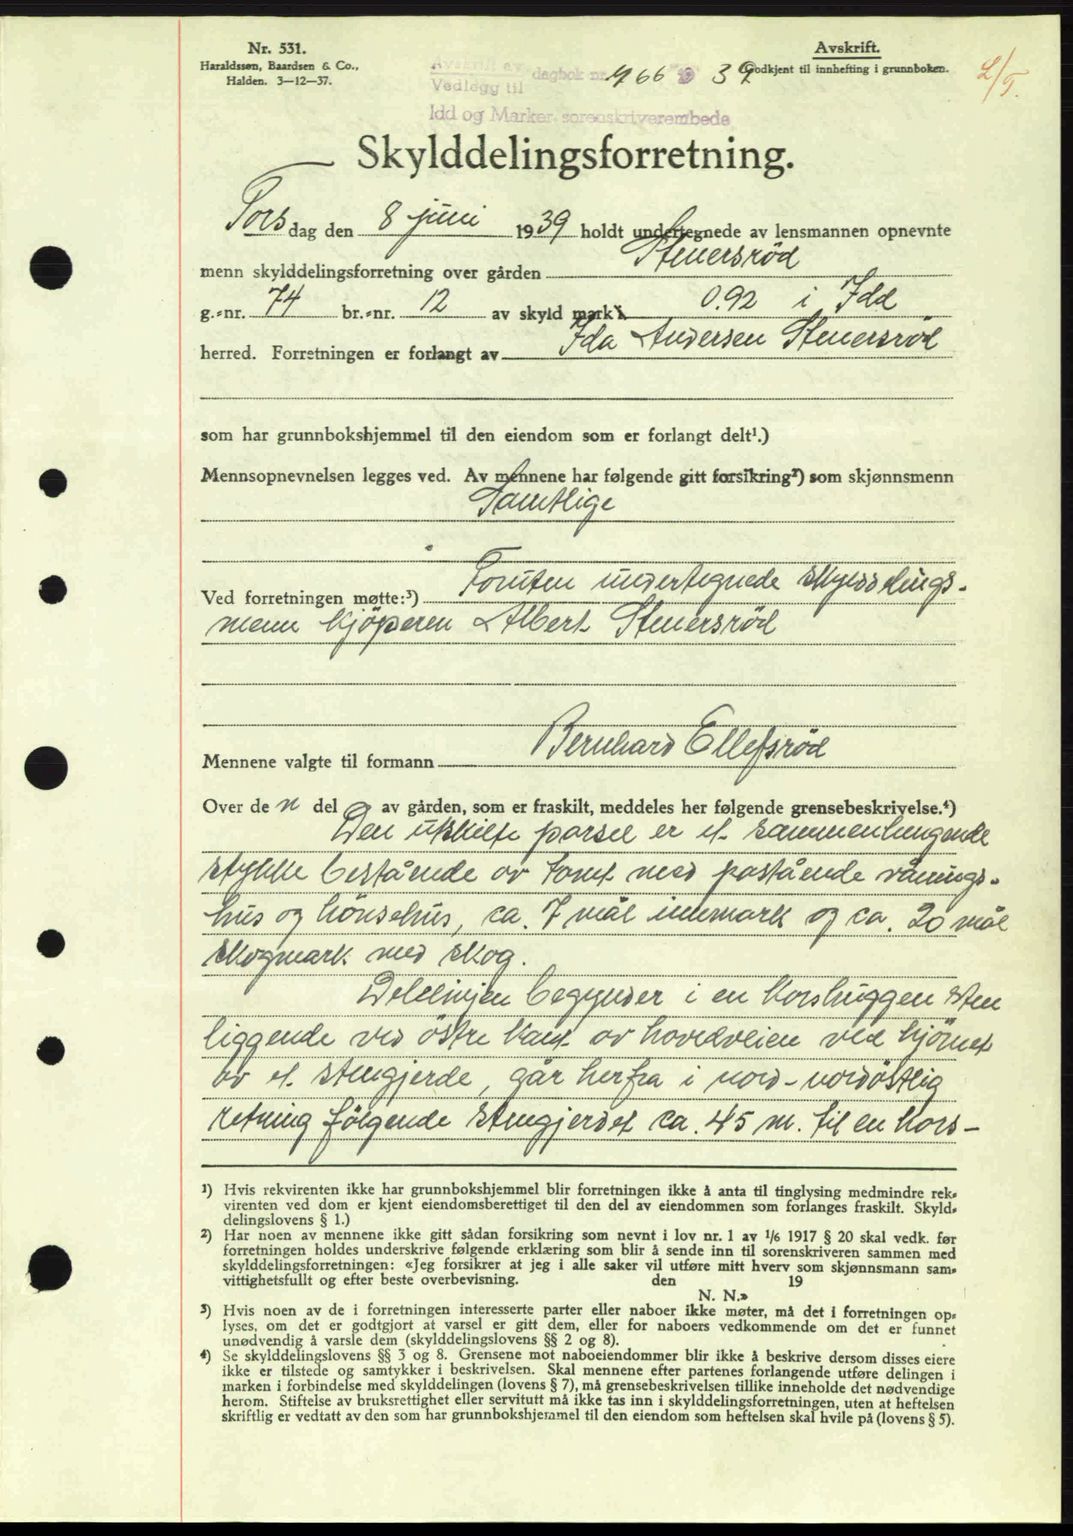 Nr. 531.
Haraldssøn, Baardsen & Co.,
Halden. 3—12—37.
Avskrift.
Godkjent til innhefting i grunnboken.
Avskrift av
Vedlegg til
dagbok nr. 966 39
Idd og Marker sorenskriverembede
Skylddelingsforretning.
Torsdag den 8 juni 1939 holdt undertegnede av lensmannen opnevnte
menn skylddelingsforretning over gården Stenersrød
g.-nr. 74 br.-nr. 12 av skyld mark 0.92 i Idd
herred. Forretningen er forlangt av Ida Andersen Stenersrød
som har grunnbokshjemmel til den eiendom som er forlangt delt¹.)
Mennsopnevnelsen legges ved. Av mennene har følgende gitt forsikring²) som skjønnsmenn
Samtlige
Ved forretningen møtte:³) Foruten undertegnede skylddelings-
menn kjöperen Albert Stenersröd
Mennene valgte til formann Bernhard Ellefsrød
Over den del av gården, som er fraskilt, meddeles her følgende grensebeskrivelse.⁴)
Den utskilte parsel er et sammenhengende
stykke bestående av tomt med påstående vånings-
hus og hönsehus, ca. 7 mål innmark og ca. 20 mål
skogmark med skog.
Delelinjen begynder i en korshuggen sten
liggende ved östre kant av hovedveien ved hjörnet
av et stengjerde, går herfra i nord-nordöstlig
retning fölgende stengjerdet ca. 45 m. til en kors-
¹) Hvis rekvirenten ikke har grunnbokshjemmel blir forretningen ikke å anta til tinglysing medmindre rek-
virenten ved dom er kjent eiendomsberettiget til den del av eiendommen som forlanges fraskilt. Skyld-
delingslovens § 1.)
²) Har noen av mennene ikke gitt sådan forsikring som nevnt i lov nr. 1 av 1/6 1917 § 20 skal vedk. før
forretningen holdes underskrive følgende erklæring som blir å sende inn til sorenskriveren sammen med
skylddelingsforretningen: «Jeg forsikrer at jeg i alle saker vil utføre mitt hverv som skjønnsmann sam-
vittighetsfullt og efter beste overbevisning. den 19
N. N.»
³) Hvis noen av de i forretningen interesserte parter eller naboer ikke møter, må det i forretningen op-
lyses, om det er godtgjort at varsel er gitt dem, eller for naboers vedkommende om det er funnet
unødvendig å varsle dem (skylddelingslovens §§ 2 og 8).
⁴) Se skylddelingslovens §§ 3 og 8. Grensene mot naboeiendommer blir ikke å beskrive dersom disses eiere
ikke er tilstede og samtykker i beskrivelsen. Skal mennene efter partenes forlangende utføre delingen i
marken i forbindelse med skylddelingen (lovens § 7), må grensebeskrivelsen tillike inneholde det nødvendige
herom. Stiftelse av bruksrettighet eller servitutt må ikke tas inn i skylddelingsforretningen, uten at heftelsen
skriftlig er vedtatt av den som har grunnbokshjemmel til den eiendom som heftelsen skal hvile på (lovens § 5).